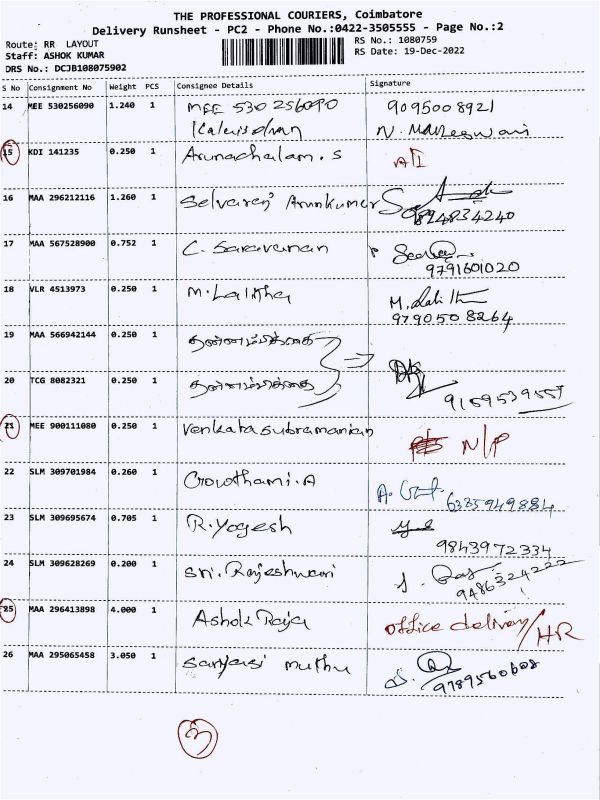 THE PROFESSIONAL COURIERS, Coimbatore
Delivery Runsheet - PC2 - Phone No.:0422-3505555 - Page No.:2
Route: RR LAYOUT
RS No.: 1080759
Staff: ASHOK KUMAR
RS Date: 19-Dec-2022
DRS No.: DCJB108075902
S No Consignment No Weight PCS Consignee Details Signature
14 MEE 530256090 1.240 1 MEE 530 256090 9095008921
N. Maheswari
15 KDI 141235 0.250 1 Arunachalam. S
16 MAA 296212116 1.260 1 Selvaraj Arunkumar
9894834240
17 MAA 567528900 0.752 1 C. Saravanan
9791601020
18 VLR 4513973 0.250 1 M. Lalitha
9790508264
19 MAA 566942144 0.250 1
20 TCG 8082321 0.250 1
9159539557
21 MEE 900111080 0.250 1 Venkatasubramanian N/P
22 SLM 309701984 0.260 1 Gowthami. A
6385949884
23 SLM 309695674 0.705 1 R. Yogesh
9843972334
24 SLM 309628269 0.200 1 Sri. Rajeshwari
9486324222
25 MAA 296413898 4.000 1 Ashok Raja office delivery/HR
26 MAA 295065458 3.050 1 Sanyasi muthu
9789560608
3